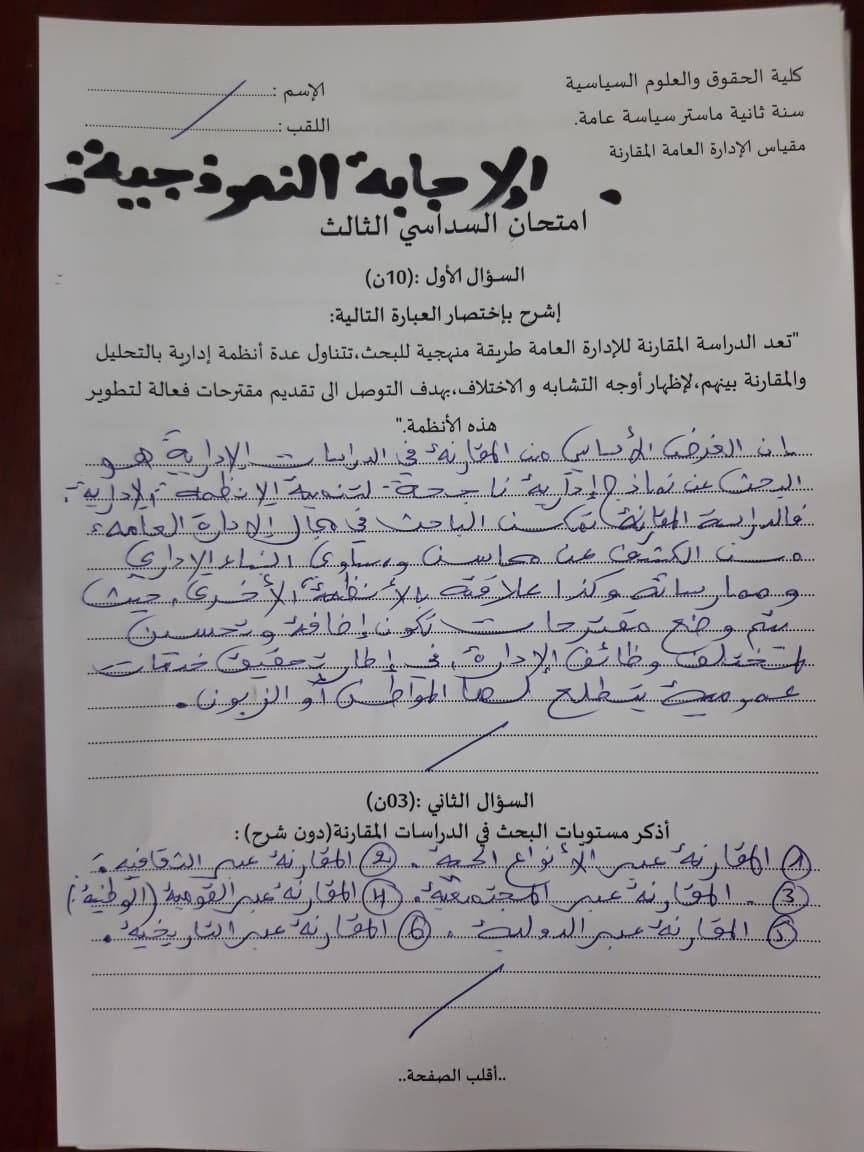 كلية الحقوق والعلوم السياسية
الإسم :
سنة ثانية ماستر سياسة عامة.
اللقب :
مقياس الإدارة العامة المقارنة
الإجابة النموذجية:
امتحان السداسي الثالث
السؤال الأول :(10ن)
إشرح بإختصار العبارة التالية:
"تعد الدراسة المقارنة للإدارة العامة طريقة منهجية للبحث،تتناول عدة أنظمة إدارية بالتحليل
والمقارنة بينهم،لإظهار أوجه التشابه و الاختلاف،بهدف التوصل الى تقديم مقترحات فعالة لتطوير
هذه الأنظمة."
إن الغرض الأساسي من المقارنة في الدراسات الإدارية هو
البحث عن نماذج إدارية ناجحة لتنمية الأنظمة الإدارية.
فالدراسة المقارنة تمكن الباحث في مجال الإدارة العامة
من الكشف عن محاسن ومساوئ البناء الإداري
وممارساته وكذا علاقته بالأنظمة الأخرى، حيث
يتم وضع مقترحات تكون إضافة وتحسين
لمختلف وظائف الإدارة، في إطار تحقيق خدمات
عمومية يتطلع لها المواطن أو الزبون.
السؤال الثاني :(03ن)
أذكر مستويات البحث في الدراسات المقارنة(دون شرح) :
1 المقارنة عبر الأنواع الحية. 2 المقارنة عبر الثقافية.
3. المقارنة عبر المجتمعية. 4 المقارنة عبر القومية (الوطنية)
5 المقارنة عبر الدولية. 6 المقارنة عبر التاريخية.
..أقلب الصفحة..